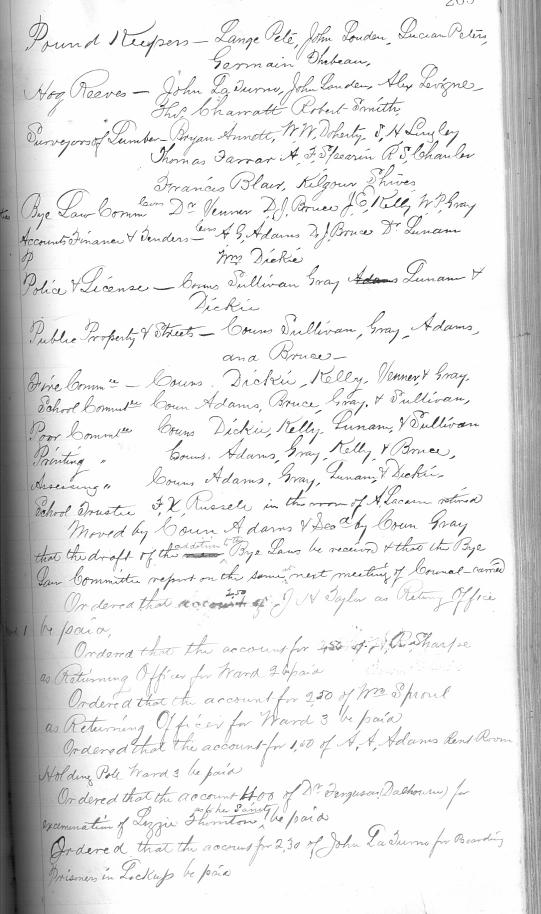 Pound Keepers — Lange Pete, John Louden, Lucian Peters,
Germain Thebeau,
Hog Reeves — John La Turno, John Louden Alex Levigne
Thos. Charratt Robert Smith,
Surveyors of Lumber — Bryan Annett, W. W. Doherty S. H Lingley
Thomas Farrar A. F. Spearin R S. Chanler
Francis Blair, Kilgour Shives
Bye Law Comm Couns Dr Venner D. J. Bruce J. E. Kelly W. P. Gray
Accounts Finance & Tenders — Couns A G. Adams D. J. Bruce Dr Lunam
Wm Dickie
Police & License — Couns Sullivan Gray Adams Lunam &
Dickie
Public Property & Streets — Couns Sullivan, Gray, Adams,
and Bruce —
Fire Comm — Couns. Dickie, Kelly. Venner, & Gray.
School Commtee Coun Adams, Bruce, Gray, & Sullivan,
Poor Commtee Couns Dickie, Kelly. Lunam, & Sullivan
Printing " Couns. Adams, Gray, Kelly, & Bruce,
Assessing " Couns Adams, Gray, Lunam, & Dickie,
School Trustee F. X Russell in the room of A. retired
Moved by Coun Adams & Secd by Coun Gray
that the draft of the additions to the Bye Laws be received & that the Bye
Law Committee report on the same at next meeting of Council — carried
Ordered that account of 2.50 J H Taylor as Returng Officer
Ward 1 be paid,
Ordered that the account for 2.50 of R Sharpe
as Returning Officer for Ward 2 be paid
Ordered that the account for 2.50 of Wm Sproul
as Returning Officer for Ward 3 be paid
Ordered that the account for 1.00 of A, A, Adams Rent Room
Holding Pole Ward 3 be paid
Ordered that the account 4.00 of Dr Ferguson (Dalhousie) for
examination of Lizzie Thornton, as to her Sanity be paid
Ordered that the account for 2,30 of John La Turno for Boarding
Prisoners in Lockup be paid